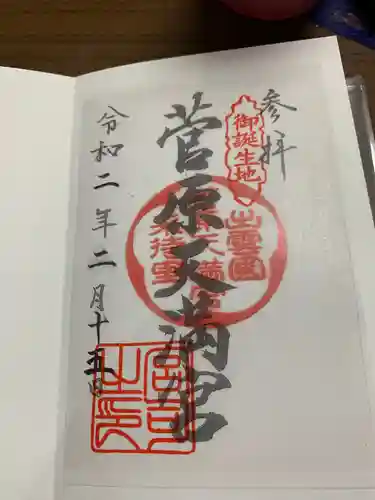 参拝
御誕生地
菅原天満宮
出雲國
菅原天満宮
来待里
令和二年二月十五日
宮司之印